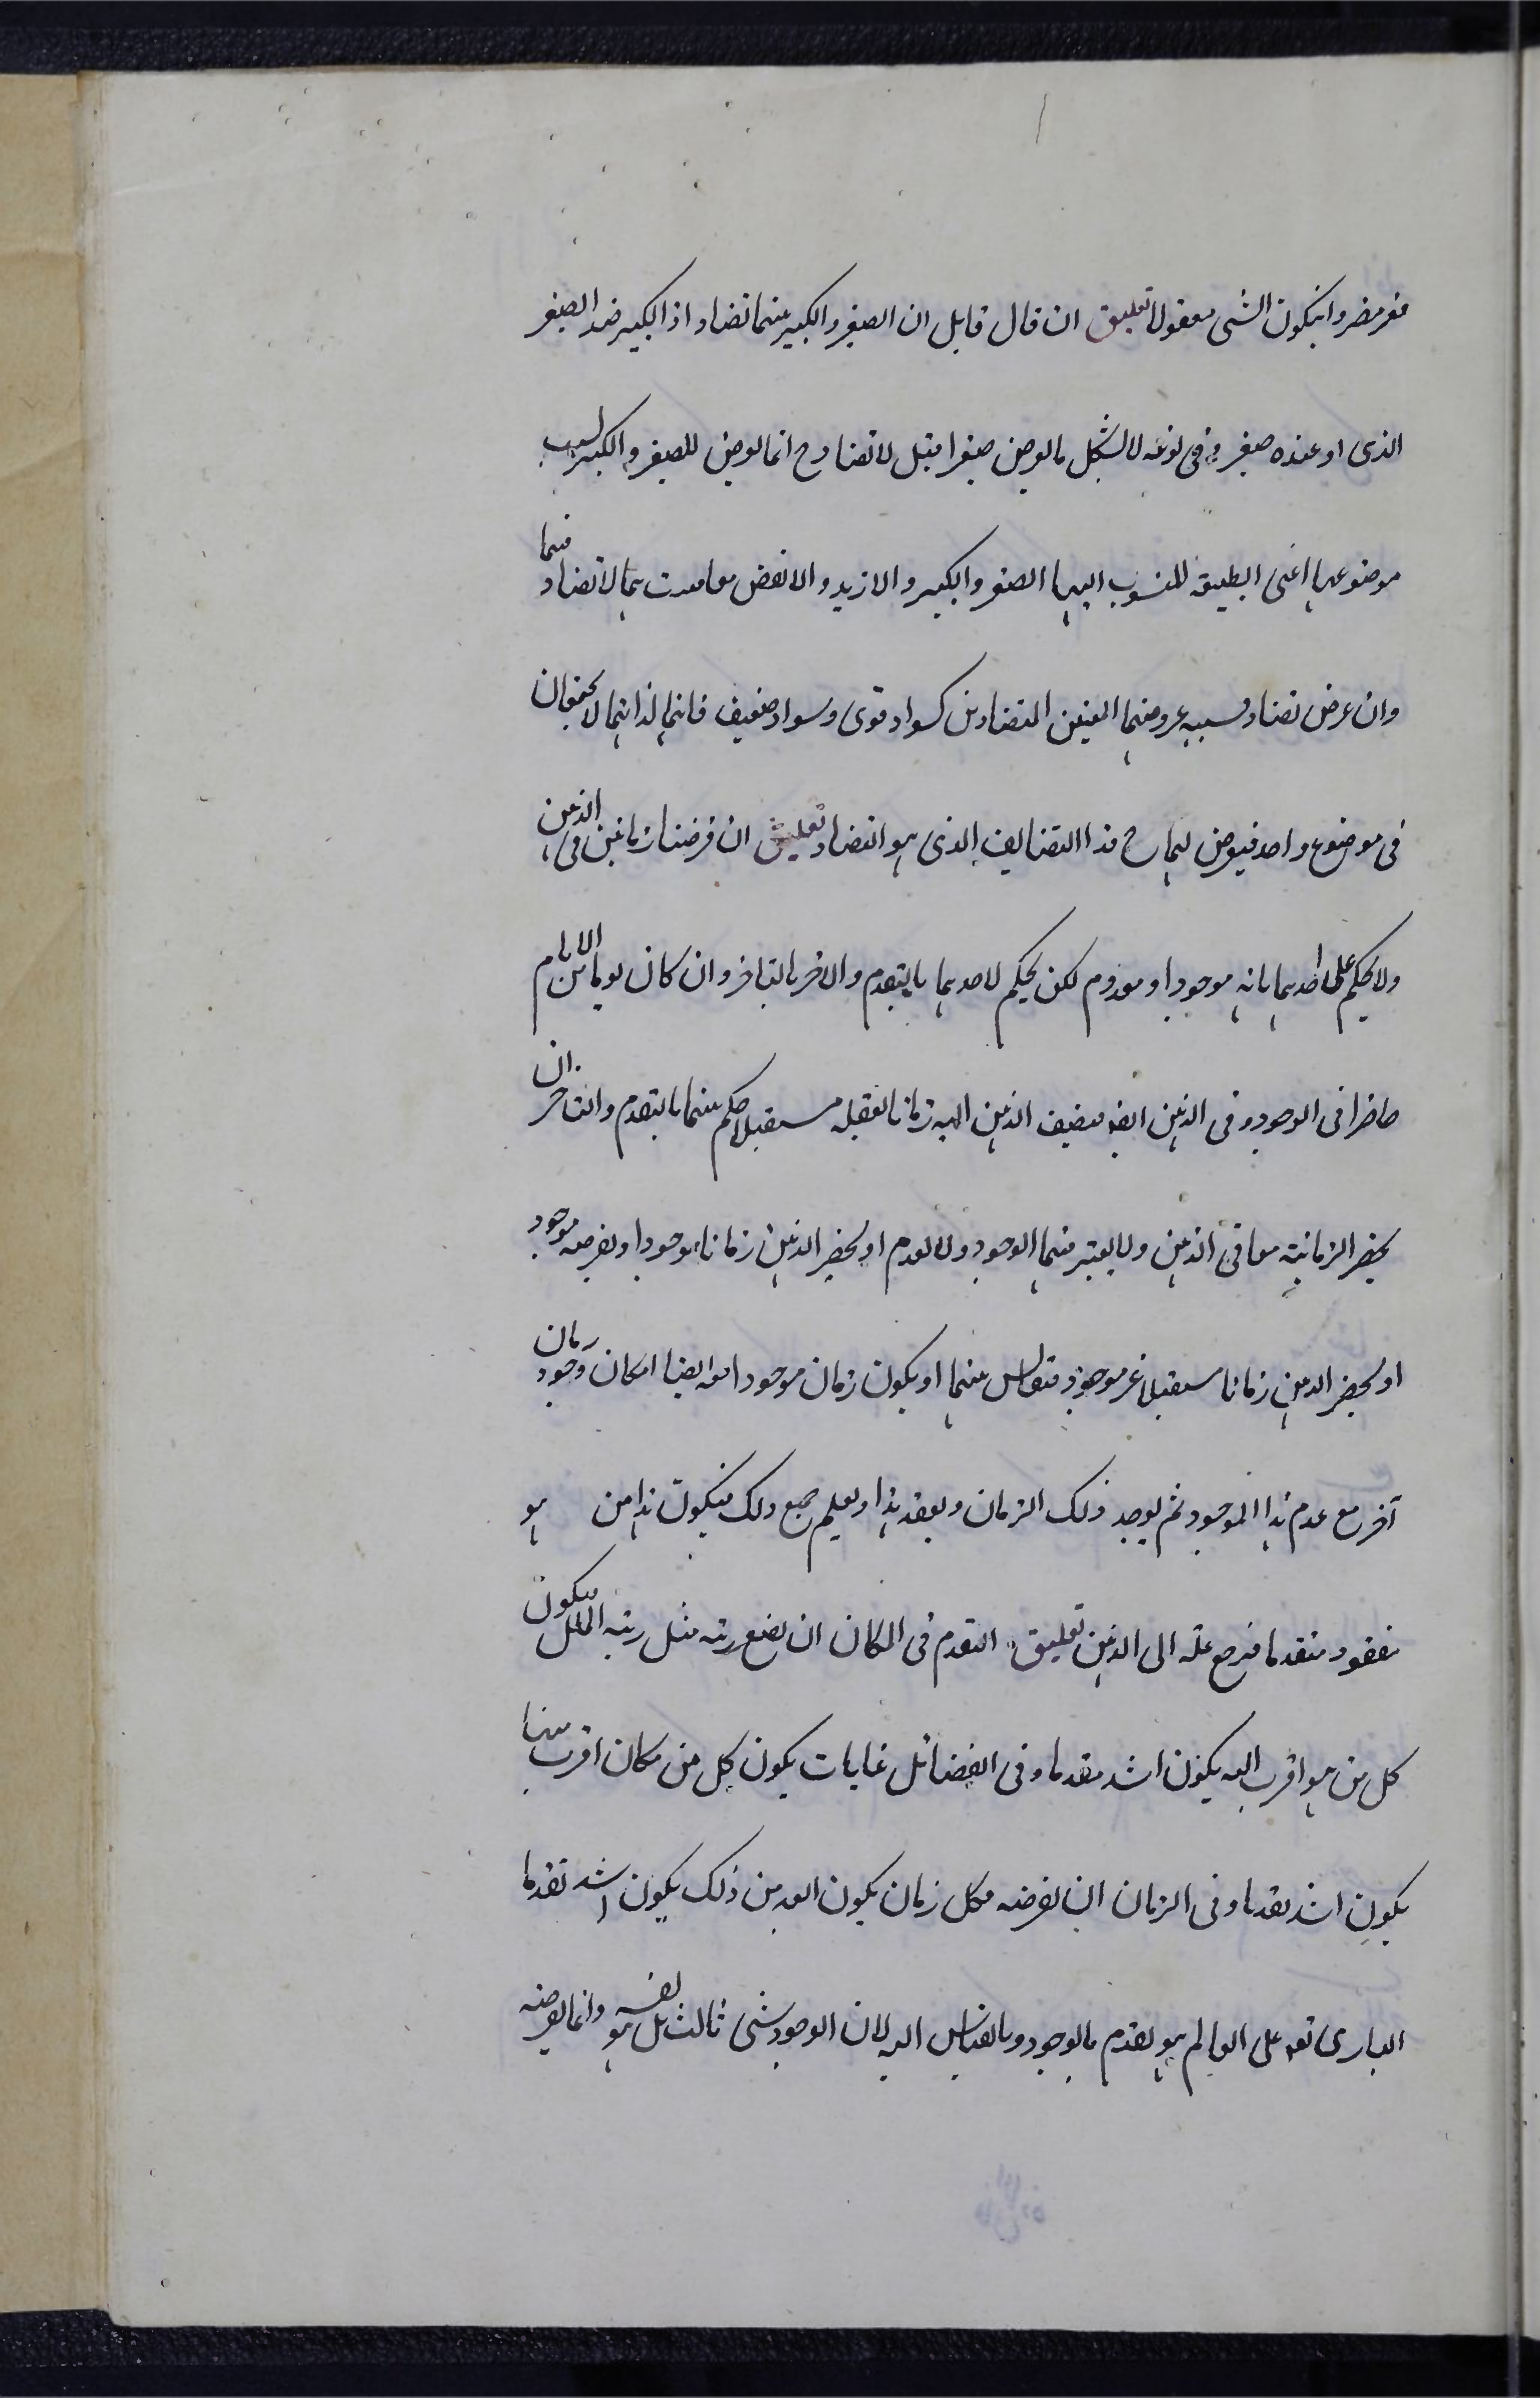 غير مضر وان يكون الشى معقولا تعليق ان قال قايل ان الصغير والكبير بينهما تضاد اذ الكبير ضد الصغير
الذى او عنده صغير و فى نوعه لا لشكل ما يعرض صغيرا قيل لا تضاد ح انما يعرض للصغير والكبير لسبب
موضوعها اعنى الطبيعة المنسوب اليها الصغير والكبير والازيد والانقص معا ليست هما لا تضاد فيهما
وان عرض تضاد فسببه عروضهما المعنيين المتضادين كسواد قوى وسواد ضعيف فانهما لذاتهما لا يجتمعان
فى موضوع واحد فيعرض لهما ح هذا التضايف الذى هو التضاد تعليق ان فرضنا زمانين فى الذهن
ولا يحكم على احدهما بانه موجود او معدوم لكن يحكم لاحدهما بالتقدم والاخر بالتاخر وان كان يوما من الايام
حاضرا فى الوجود و فى الذهن ايضا فيضيف الذهن اليه زمانا لعقله مستقبلا حكم بينهما بالتقدم والتاخر ان
يحضر الزمانية معا فى الذهن ولا يعتبر فيهما الوجود ولا العدم او يحضر الذهن زمانا موجودا و يفرضه موجود
او يحضر الذهن زمانا مستقبلا غير موجود فيقايس بينهما او يكون زمان موجود امعه ايضا امكان وجود زمان
آخر مع عدم هذا الموجود ثم يوجد ذلك الزمان ويفقد هذا ويعلم جميع ذلك فيكون هذا من هو
مفقود متقدما فيرجع علته الى الذهن تعليق التقدم فى المكان ان يضع رتبه مثل رتبه الملك فيكون
كل من هو اقرب اليه يكون اشد تقدما وفى الفضائل غايات يكون كل من مكان اقرب منها
يكون اشد تقدما وفى الزمان ان يفرضه فكل زمان يكون ابعد من ذلك يكون اشد تقدما
البارى تعه على العالم هو تقدم بالوجود وبالقياس اليه لان الوجود شى ثالث بل هو نفسه وانما يعرضه